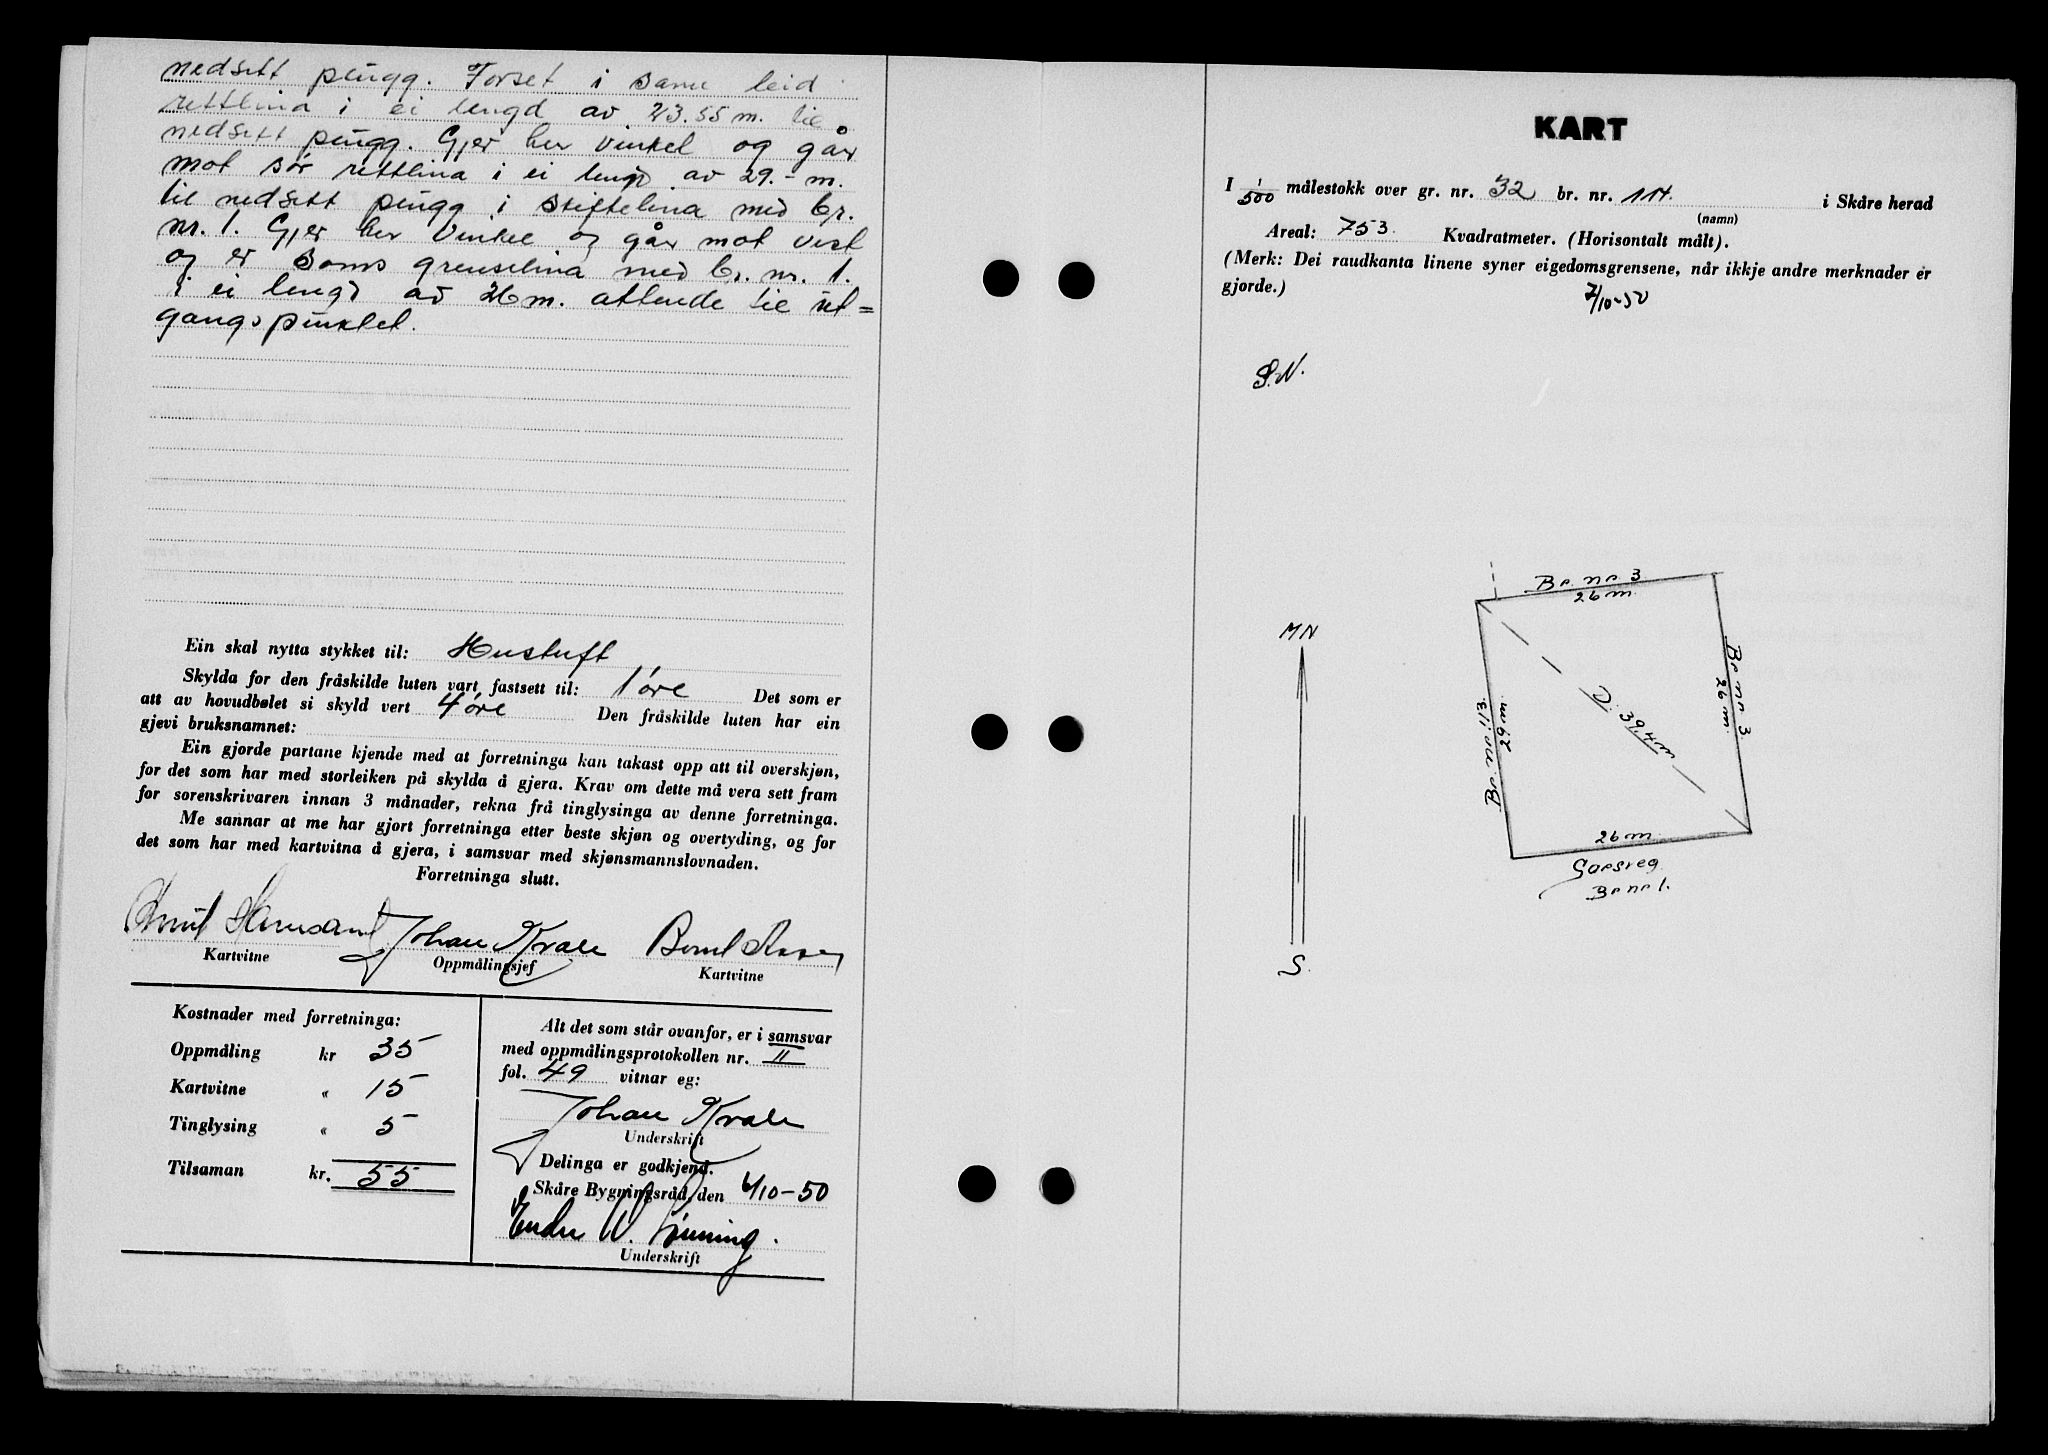 nedsett pingg. Forset i same leid
rettlina i ei lengd av 23.55 m. til
nedsett pingg. Gjer her vinkel og går
mot sør rettlina i ei lengd av 29.- m.
til nedsett pingg i skiftelina med br.
nr. 1. Gjer her vinkel og går mot vest
og er sams grenselina med br. nr. 1.
i ei lengd av 26 m. attende til ut=
gangspunktet.
Ein skal nytta stykket til: Hustuft
Skylda for den fråskilde luten vart fastsett til: 1 øre Det som er
att av hovudbølet si skyld vert 4 øre Den fråskilde luten har ein
gjevi bruksnamnet:
Ein gjorde partane kjende med at forretninga kan takast opp att til overskjøn,
for det som har med storleiken på skylda å gjera. Krav om dette må vera sett fram
for sorenskrivaren innan 3 månader, rekna frå tinglysinga av denne forretninga.
Me sannar at me har gjort forretninga etter beste skjøn og overtyding, og for
det som har med kartvitna å gjera, i samsvar med skjønsmannslovnaden.
Forretninga slutt.
Johan Kvale
Kartvitne Oppmålingsjef Kartvitne
Kostnader med forretninga:
Oppmåling kr 35
Kartvitne " 15
Tinglysing " 5
Tilsaman kr. 55
Alt det som står ovanfor, er i samsvar
med oppmålingsprotokollen nr. II
fol. 49 vitnar eg:
Johan Kvale
Underskrift
Delinga er godkjend.
Skåre Bygningsråd, den 6/10-50
Endre W.
Underskrift
KART
I 1/500 målestokk over gr. nr. 32 br. nr. 114. i Skåre herad
(namn)
Areal: 753 Kvadratmeter. (Horisontalt målt).
(Merk: Dei raudkanta linene syner eigedomsgrensene, når ikkje andre merknader er
gjorde.)
7/10-50
S.N.
MN
S.
Br. nr. 3
26 m
Br. nr. 3
26 m.
D. 39,4 m
Br. nr. 113
29 m
26 m
Gardsveg
Br nr 1.